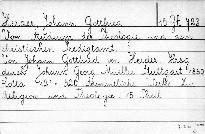 Herder, Johann Gottfried
Vom Studium der Theologie und dem
christlichen Predigtamt.
Von Johann Gottfried von Herder. Hrsg.
durch Johann Georg Müller. Stuttgart 1850
Cotta 8° 320 Sämmtliche Werke. Zur
Religion und Theologie 15. Theil